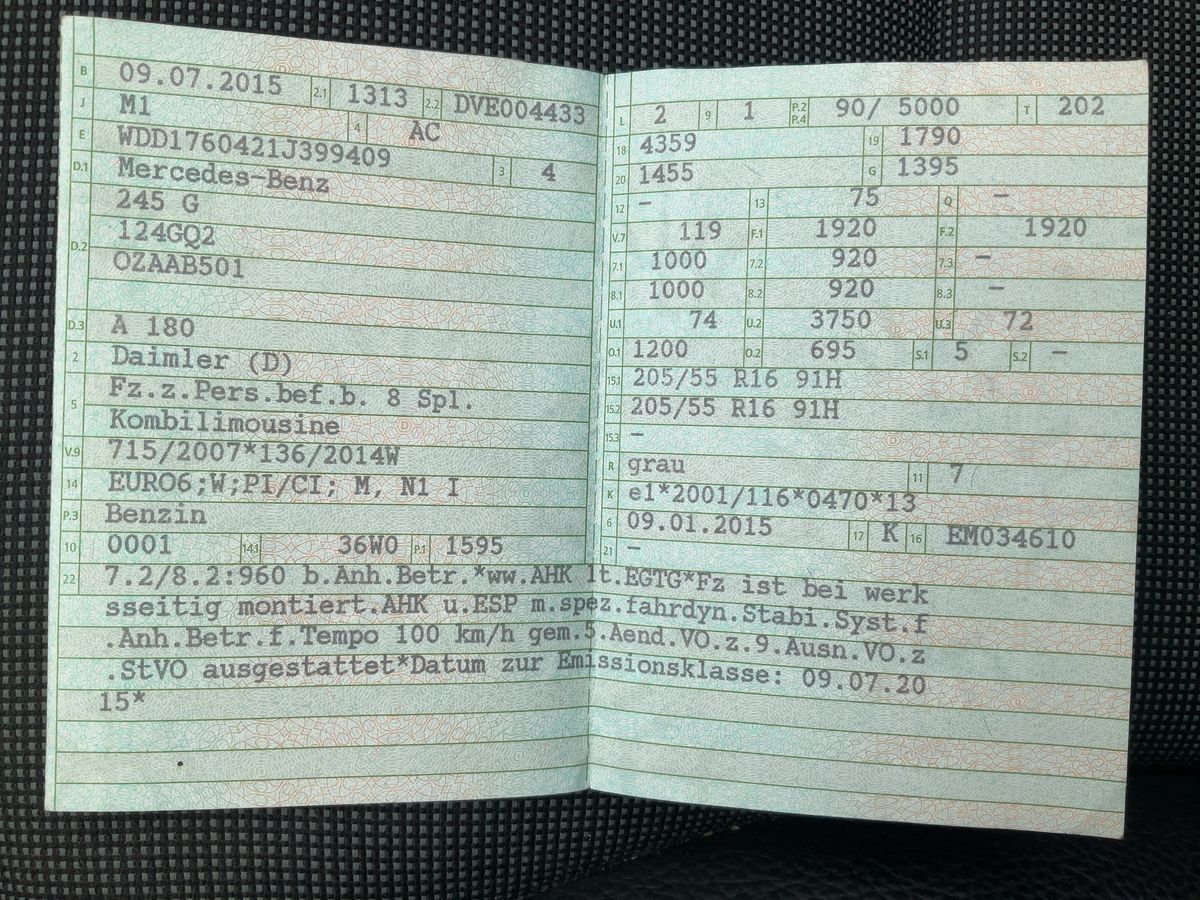 B 09.07.2015 2.1 1313 2.2 DVE004433
J M1 4 AC
E WDD1760421J399409 3 4
D.1 Mercedes-Benz
D.2 245 G
124GQ2
OZAAB501
D.3 A 180
2 Daimler (D)
5 Fz.z.Pers.bef.b. 8 Spl.
Kombilimousine
V.9 715/2007*136/2014W
14 EURO6;W;PI/CI; M, N1 I
P.3 Benzin
10 0001 14.1 36W0 P.1 1595
L 2 9 1 P.2 P.4 90/ 5000 T 202
18 4359 19 1790
20 1455 G 1395
12 – 13 75 Q –
V.7 119 F.1 1920 F.2 1920
7.1 1000 7.2 920 7.3 –
8.1 1000 8.2 920 8.3 –
U.1 74 U.2 3750 U.3 72
O.1 1200 O.2 695 S.1 5 S.2 –
15.1 205/55 R16 91H
15.2 205/55 R16 91H
15.3 –
R grau 11 7
K e1*2001/116*0470*13
6 09.01.2015 17 K 16 EM034610
21 –
22 7.2/8.2:960 b.Anh.Betr.*ww.AHK lt.EGTG*Fz ist bei werk
sseitig montiert.AHK u.ESP m.spez.fahrdyn.Stabi.Syst.f
.Anh.Betr.f.Tempo 100 km/h gem.5.Aend.VO.z.9.Ausn.VO.z
.StVO ausgestattet*Datum zur Emissionsklasse: 09.07.20
15*